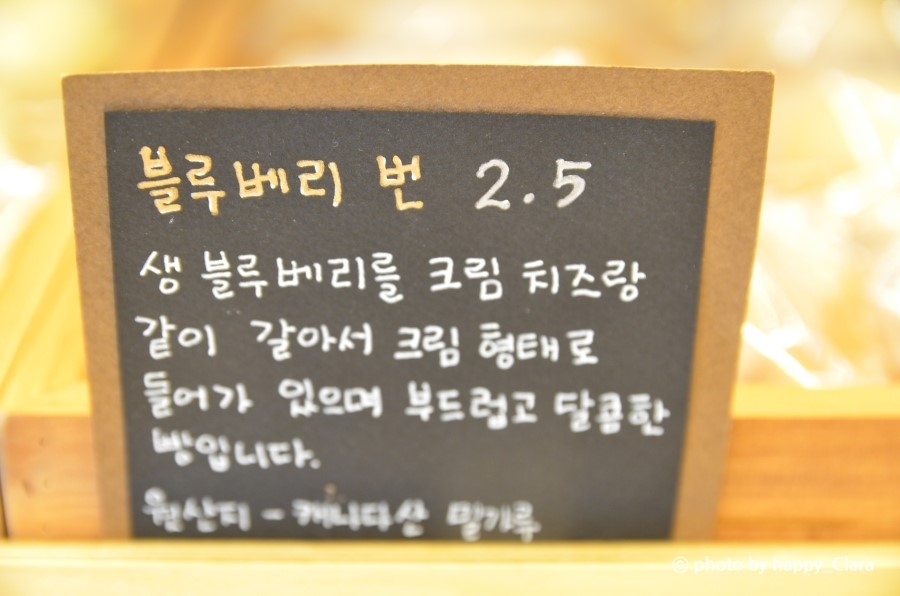 블루베리 번 2.5
생 블루베리를 크림 치즈랑
같이 갈아서 크림 형태로
들어가 있으며 부드럽고 달콤한
빵입니다.
원산지 - 캐나다산 밀가루
© photo by happy_Clara